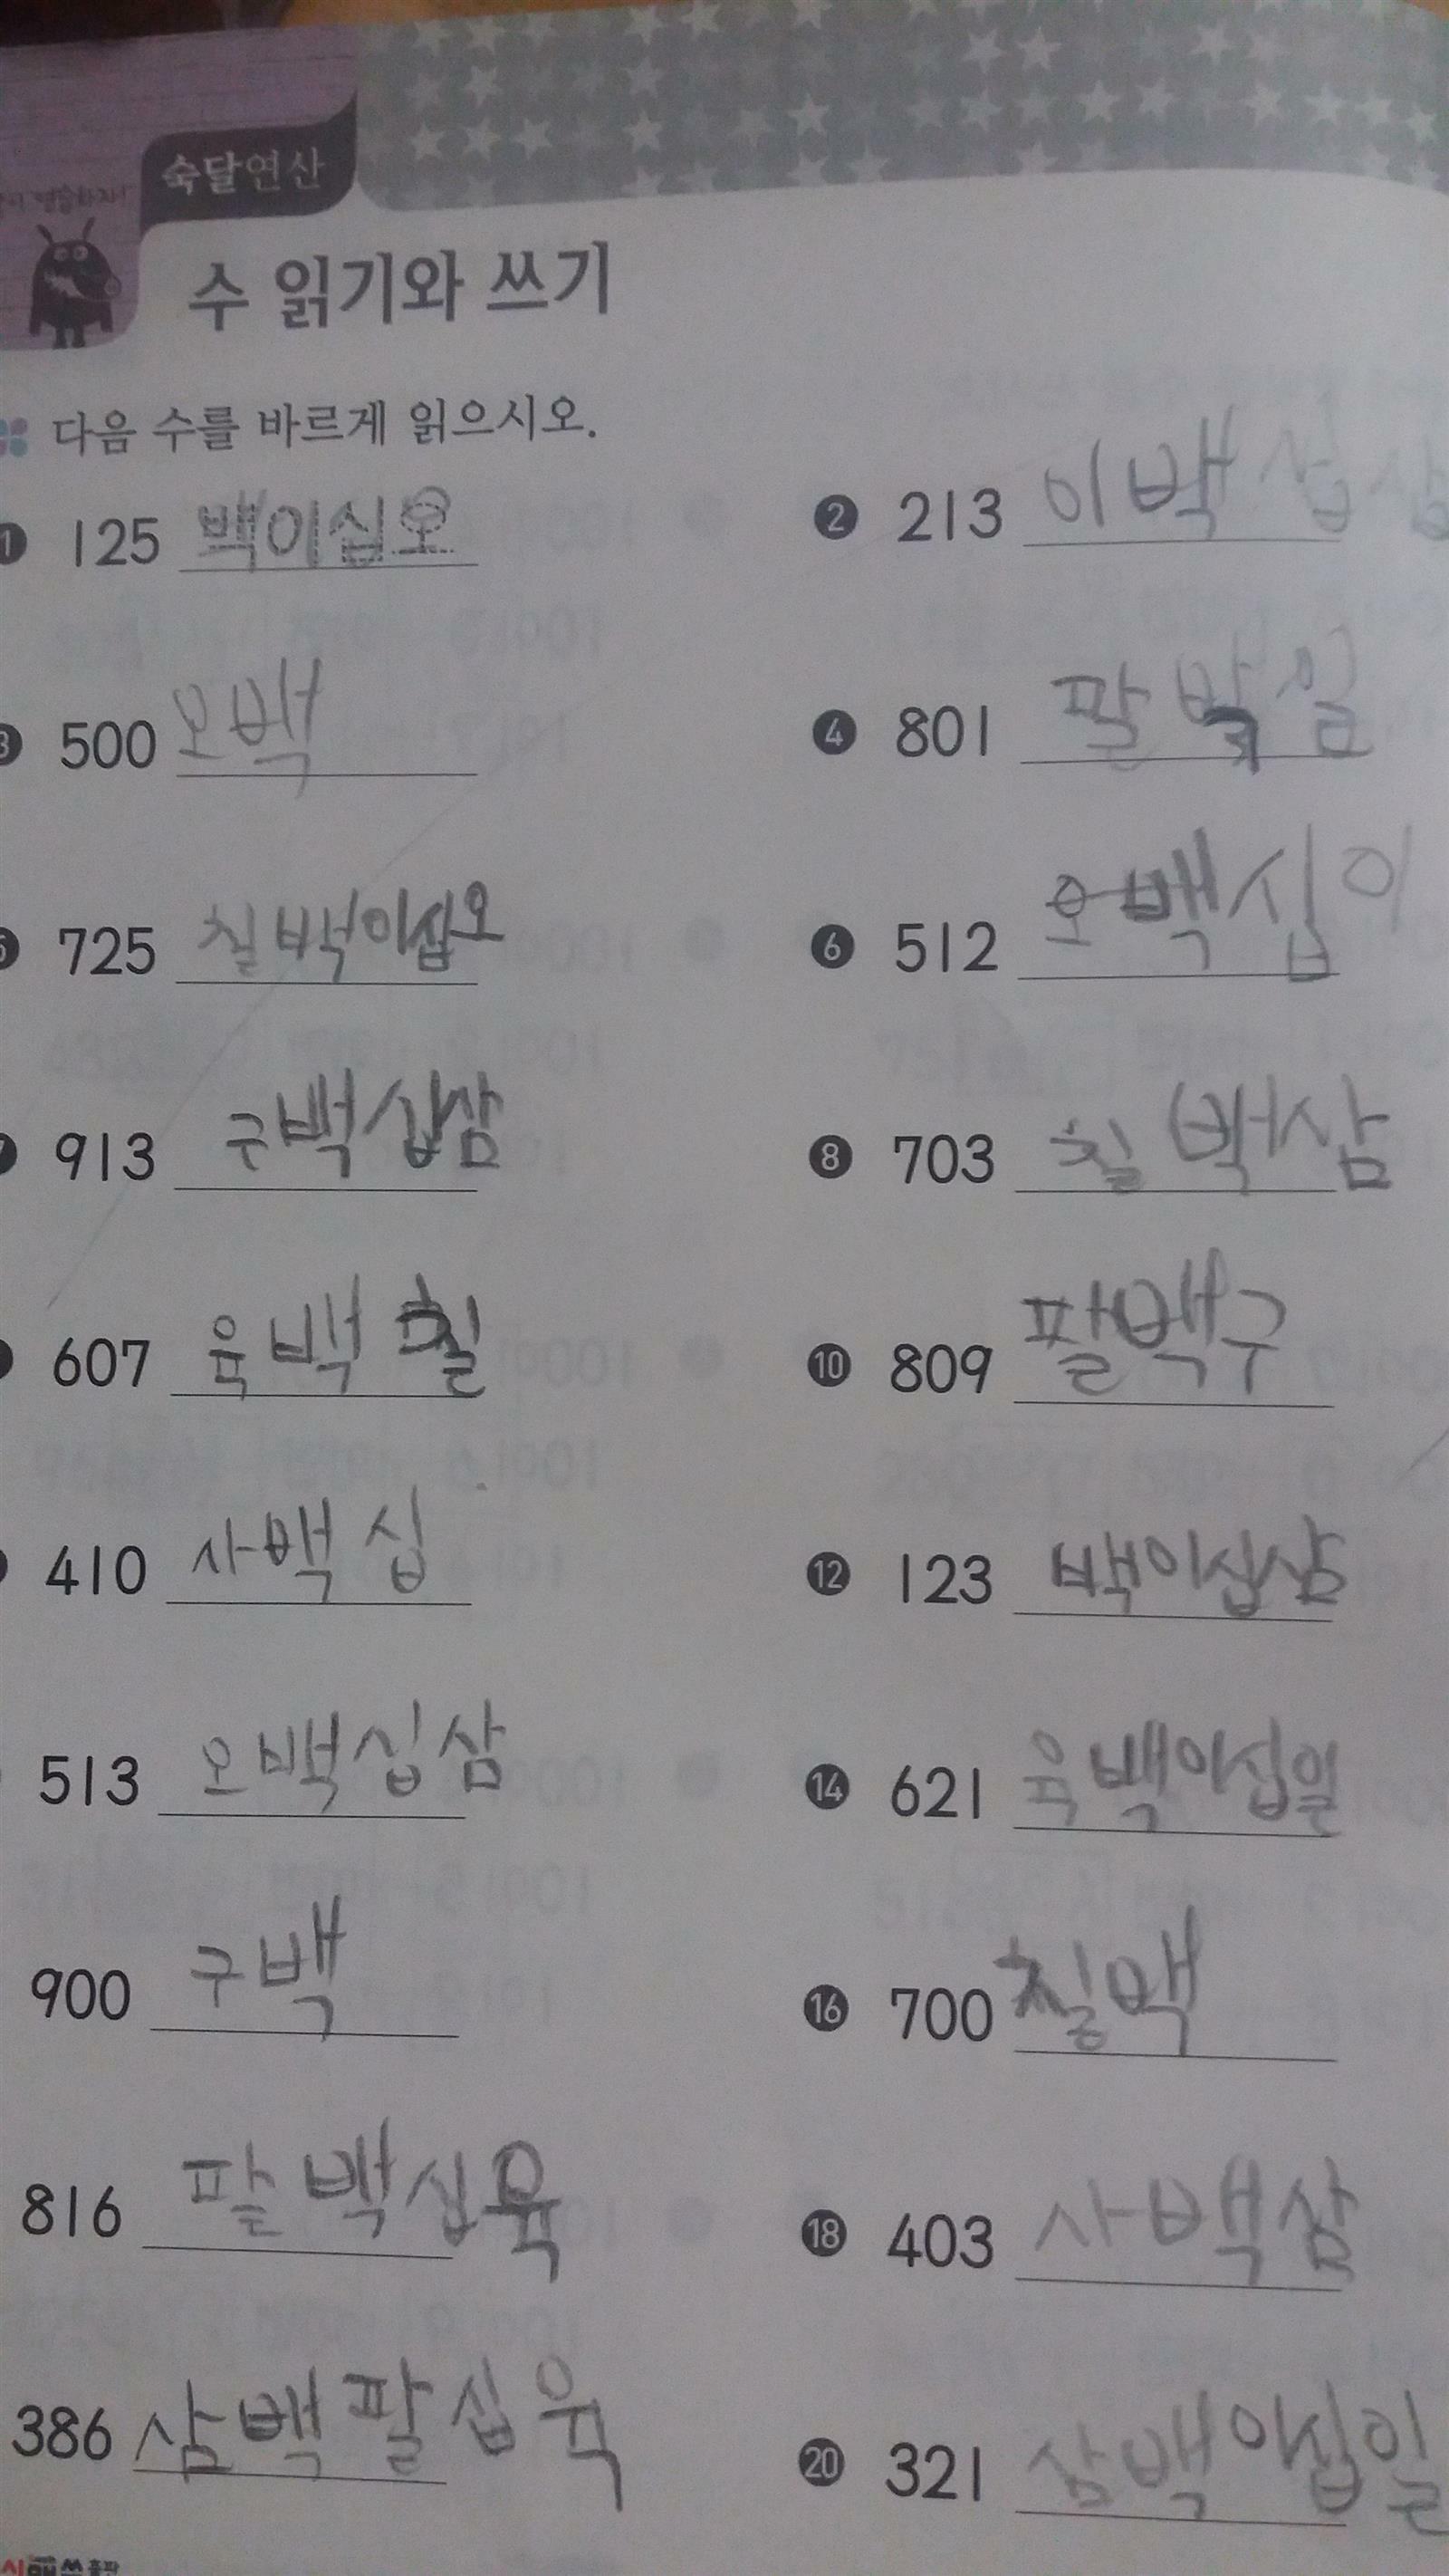 숙달연산
수 읽기와 쓰기
다음 수를 바르게 읽으시오.
1 125 백이십오
2 213 이백십삼
3 500 오백
4 801 팔백일
5 725 칠백이십오
6 512 오백십이
913 구백십삼
8 703 칠백삼
607 육백칠
10 809 팔백구
410 사백십
12 123 백이십삼
513 오백십삼
14 621 육백이십일
900 구백
16 700 칠백
816 팔백십육
18 403 사백삼
386 삼백팔십육
20 321 삼백이십일